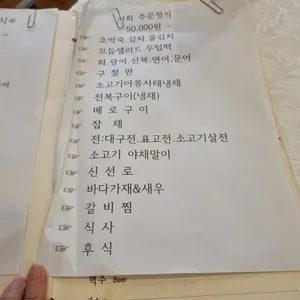 화 주문정식
50,000원 ~
호박죽,김치,물김치
모듬샐러드,두텁떡
회:광어,전복,연어,문어
구 절 판
소고기아롱사태냉채
전복구이(냉채)
메 로 구 이
잡 채
전:대구전,표고전,소고기살전
소고기 야채말이
신 선 로
바다가재&새우
갈 비 찜
식 사
후 식
맥주 Beer